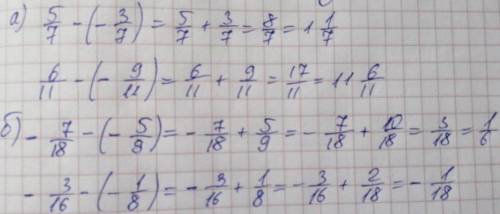 а) 5/7 - (- 3/7) = 5/7 + 3/7 = 8/7 = 1 1/7
6/11 - (- 9/11) = 6/11 + 9/11 = 17/11 = 11 6/11
б) - 7/18 - (- 5/9) = - 7/18 + 5/9 = - 7/18 + 10/18 = 3/18 = 1/6
- 3/16 - (- 1/8) = - 3/16 + 1/8 = - 3/16 + 2/18 = - 1/18